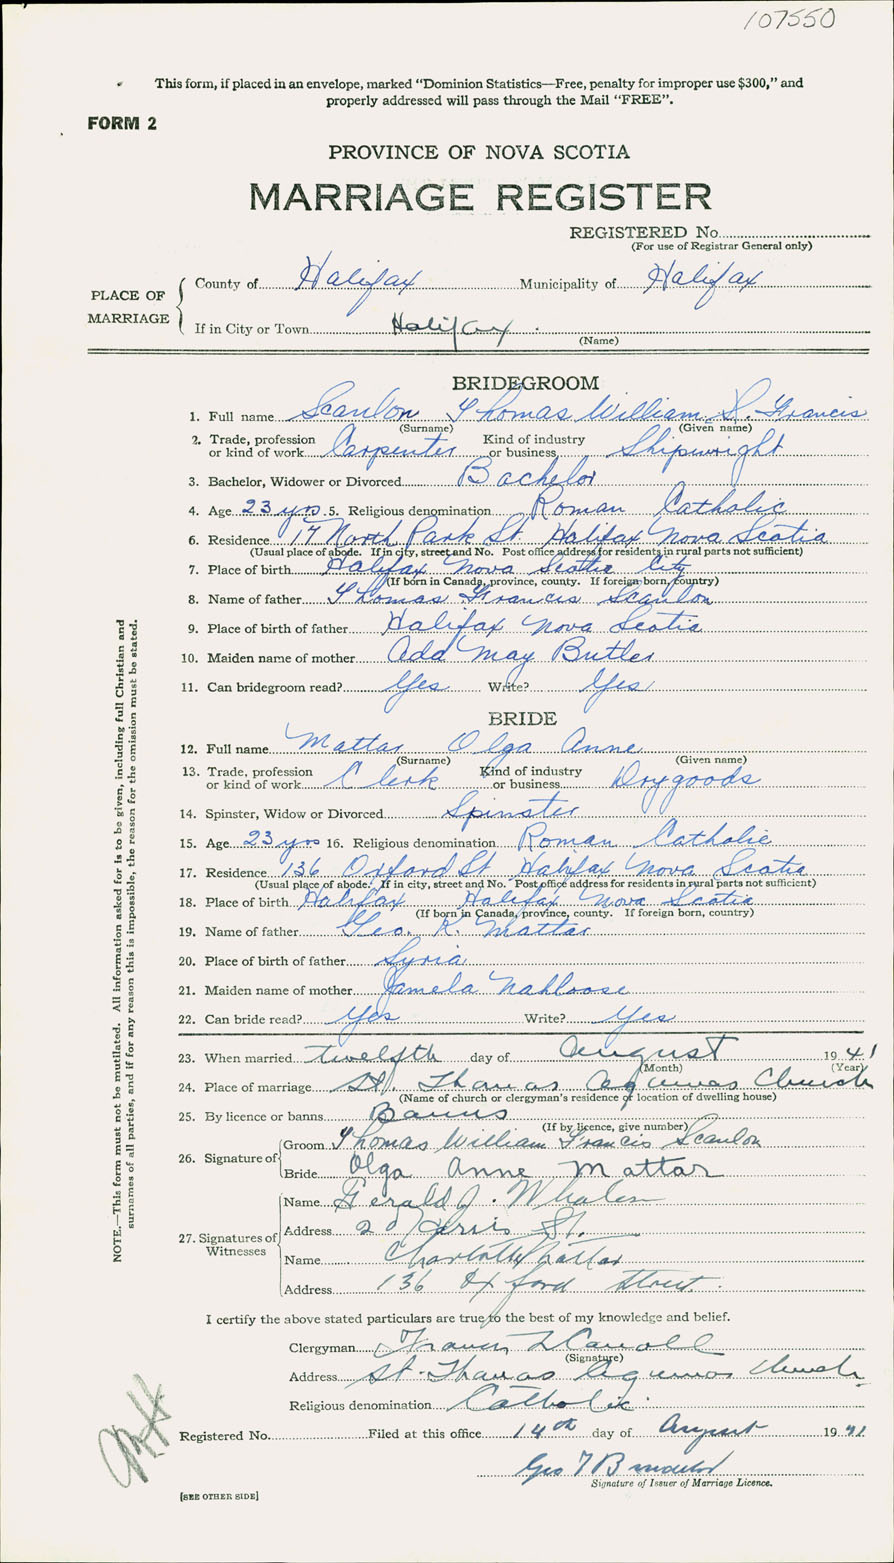 107550
This form, if placed in an envelope, marked “Dominion Statistics—Free, penalty for improper use $300,” and
properly addressed will pass through the Mail “FREE”.
FORM 2
PROVINCE OF NOVA SCOTIA
MARRIAGE REGISTER
REGISTERED No.
(For use of Registrar General only)
PLACE OF MARRIAGE
County of Halifax Municipality of Halifax
If in City or Town Halifax.
(Name)
BRIDEGROOM
1. Full name Scanlon Thomas William S. Francis
(Surname) (Given name)
2. Trade, profession or kind of work Carpenter Kind of industry or business Shipwright
3. Bachelor, Widower or Divorced Bachelor
4. Age 23 yrs. 5. Religious denomination Roman Catholic
6. Residence 17 North Park St. Halifax Nova Scotia
(Usual place of abode. If in city, street and No. Post office address for residents in rural parts not sufficient)
7. Place of birth Halifax Nova Scotia City
(If born in Canada, province, county. If foreign born, country)
8. Name of father Thomas Francis Scanlon
9. Place of birth of father Halifax Nova Scotia
10. Maiden name of mother Add May Butler
11. Can bridegroom read? Yes Write? Yes
BRIDE
12. Full name Mattar Olga Anne
(Surname) (Given name)
13. Trade, profession or kind of work Clerk Kind of industry or business Drygoods
14. Spinster, Widow or Divorced Spinster
15. Age 23 yrs 16. Religious denomination Roman Catholic
17. Residence 136 Oxford St Halifax Nova Scotia
(Usual place of abode. If in city, street and No. Post office address for residents in rural parts not sufficient)
18. Place of birth Halifax Halifax Nova Scotia
(If born in Canada, province, county. If foreign born, country)
19. Name of father Geo. K. Mattar
20. Place of birth of father Syria
21. Maiden name of mother Jamela Nahloose
22. Can bride read? Yes Write? Yes
23. When married twelfth day of August 1941
(Month) (Year)
24. Place of marriage St. Thomas Aquinas Church
(Name of church or clergyman's residence or location of dwelling house)
25. By licence or banns Banns
(If by licence, give number)
26. Signature of Groom Thomas William Francis Scanlon
Bride Olga Anne Mattar
27. Signatures of Witnesses
Name Gerald J. Whalen
Address St.
Name Charlotte Mattar
Address 136 Oxford Street.
I certify the above stated particulars are true to the best of my knowledge and belief.
Clergyman Carroll
(Signature)
Address St. Thomas Aquinas Church
Religious denomination Catholic
Registered No. Filed at this office 14th day of August 1941
Geo
Signature of Issuer of Marriage Licence.
[SEE OTHER SIDE]
NOTE.—This form must not be mutilated. All information asked for is to be given, including full Christian and
surnames of all parties, and if for any reason this is impossible, the reason for the omission must be stated.